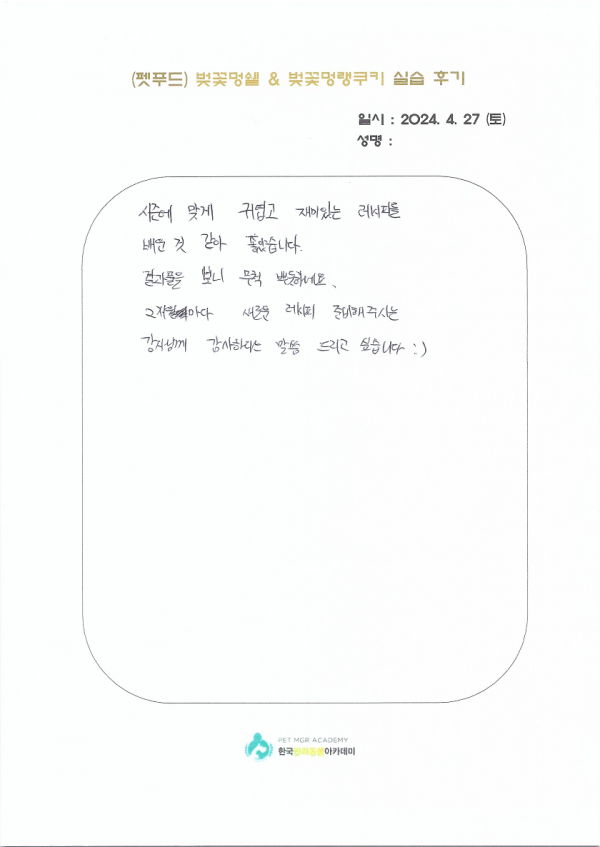 (펫푸드) 벚꽃멍쉘 & 벚꽃멍랭쿠키 실습 후기
일시 : 2024. 4. 27 (토)
성명 :
시즌에 맞게 귀엽고 재미있는 레시피를
배운 것 같아 좋았습니다.
결과물을 보니 무척 뿌듯하네요.
새로운 레시피 준비해주시는
강사님께 감사하다는 말씀 드리고 싶습니다 :)
PET MGR ACADEMY
한국반려동물아카데미